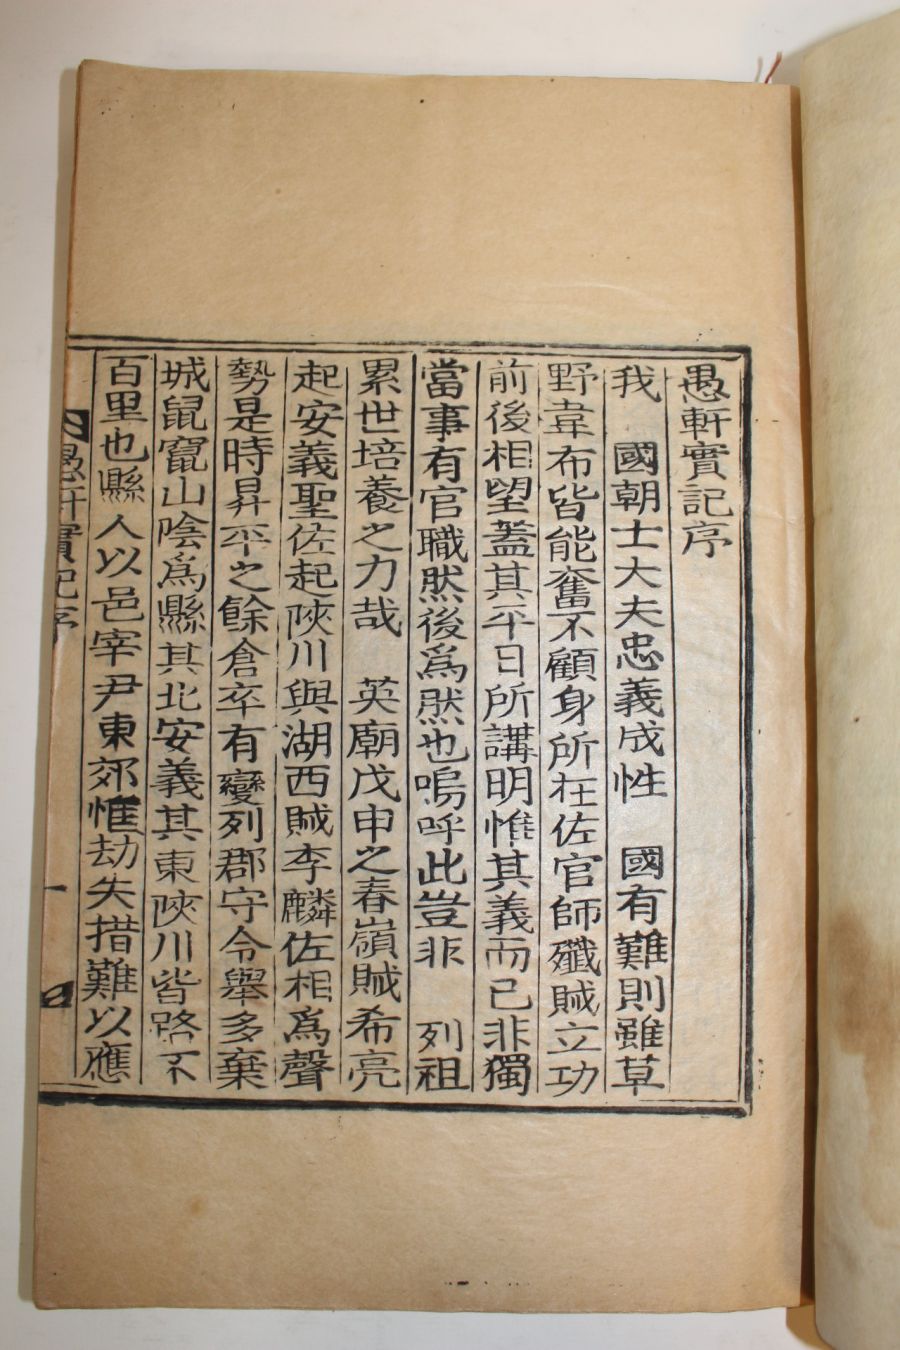 愚軒實記序
我　國朝士大夫忠義成性　國有難則雖草
野韋布皆能奮不顧身所在佐官師殲賊立功
前後相望蓋其平日所講明惟其義而已非獨
當事有官職然後爲然也嗚呼此豈非　列祖
累世培養之力哉　英廟戊申之春嶺賊希亮
起安義聖佐起陜川與湖西賊李麟佐相爲聲
勢是時昇平之餘倉卒有變列郡守令舉多棄
城鼠竄山陰爲縣其北安義其東陜川皆路不
百里也縣人以邑宰尹東郊惟劫失措難以應
愚軒實記序
一